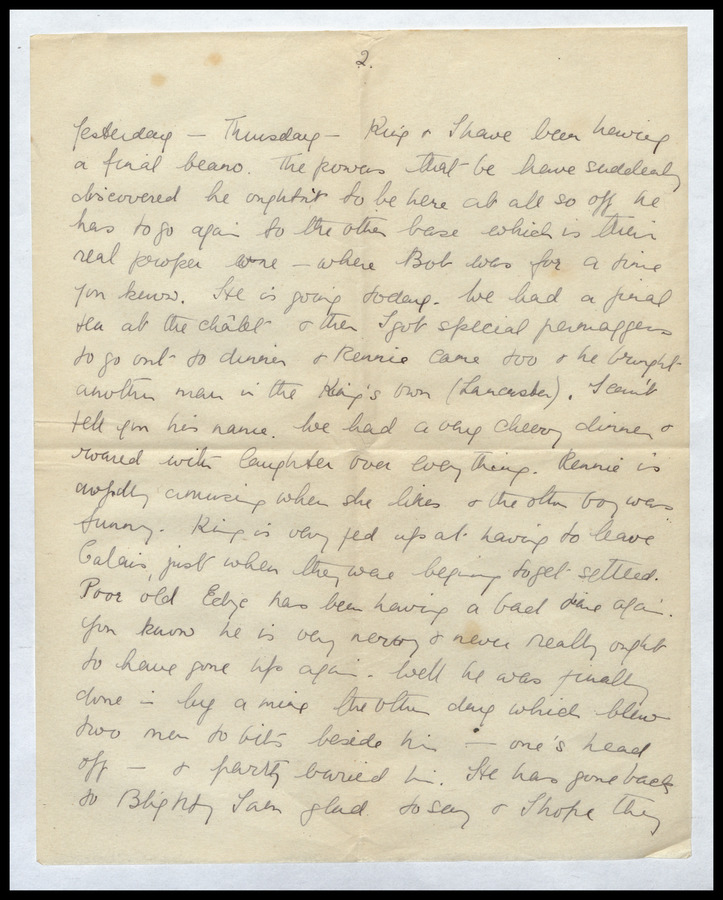 2.
Yesterday – Thursday – King & I have been having
a final beano. The powers that be have suddenly
discovered he oughtn't to be here at all so off he
has to go again to the other base which is their
real proper one – where Bob was for a time
you know. He is going today. We had a final
tea at the châlet & then I got special
to go out to dinner & Rennie came too & he brought
another man in the King's Own (Lancaster). I can't
tell you his name. We had a very cheery dinner &
roared with laughter over everything. Rennie is
awfully amusing when she likes & the other boy was
funny. King is very fed up at having to leave
Calais, just when they were begining to get settled.
Poor old has been having a bad time again.
You know he is very nervy & never really ought
to have gone up again. Well he was finally
done in by a mine the other day which blew
two men to bits beside him – one's head
off – & partly buried him. He has gone back
to Blighty I am glad to say & I hope they